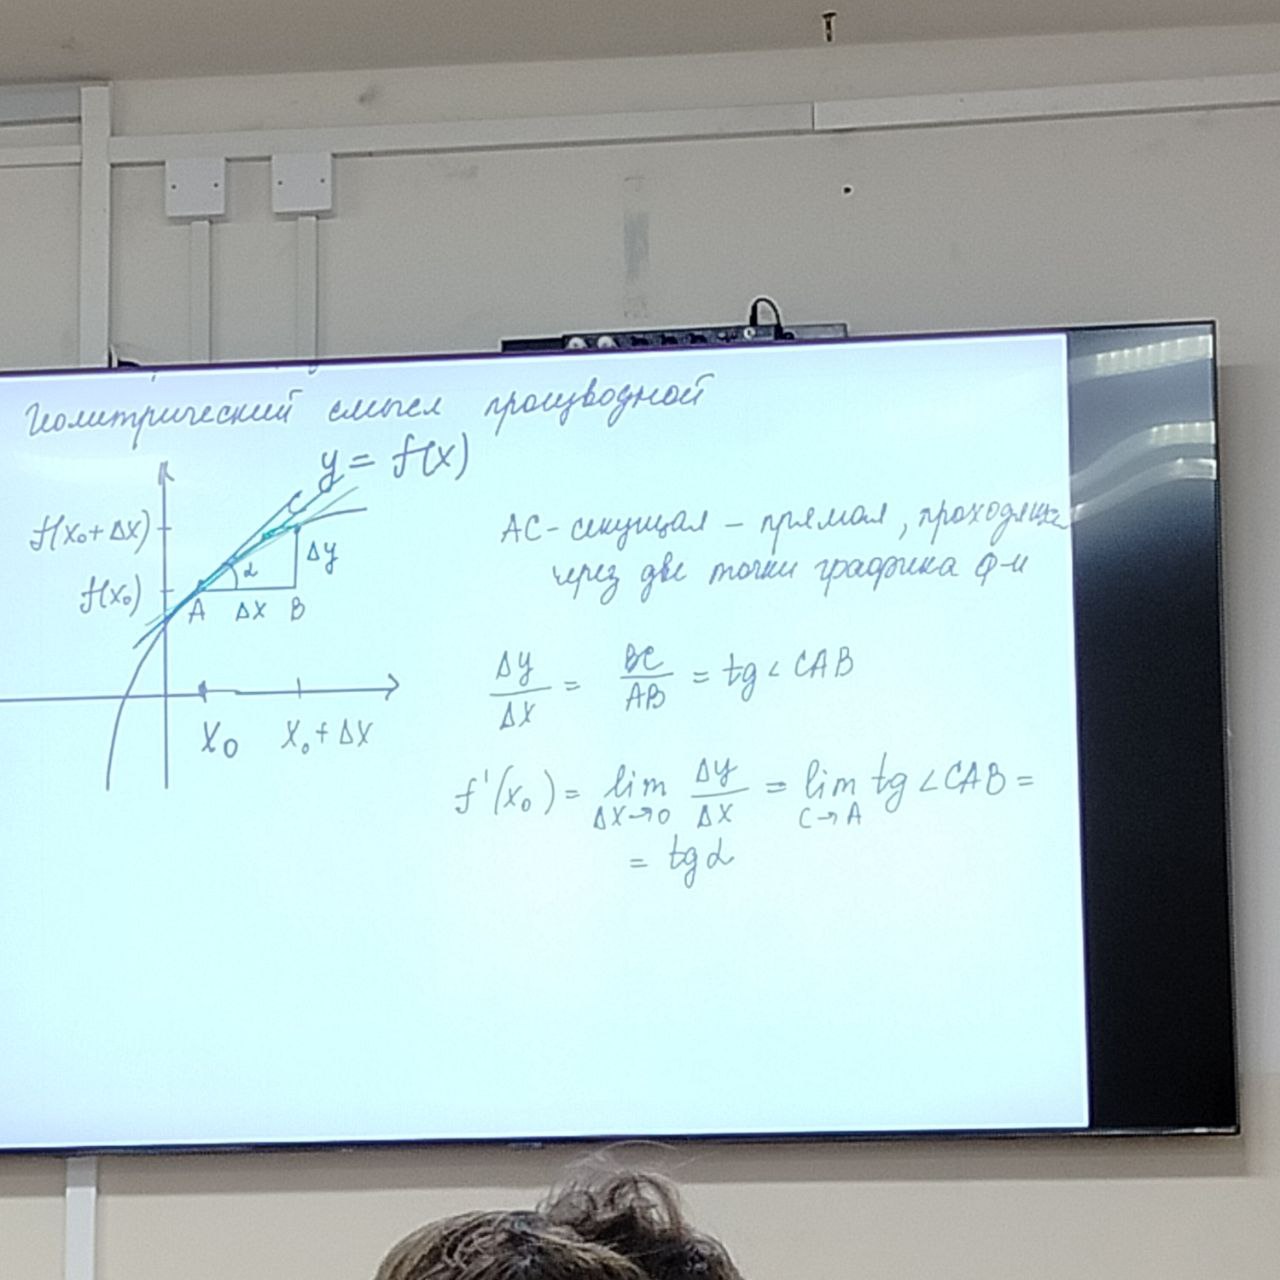 Геометрический смысл производной
y = f(x)
f(x₀ + Δx)
f(x₀)
C
α
Δy
A Δx B
x₀ x₀ + Δx
AC - секущая - прямая, проходящая
через две точки графика ф-и
Δy/Δx = BC/AB = tg ∠ CAB
f'(x₀) = lim Δx→0 Δy/Δx = lim C→A tg ∠ CAB =
= tg α